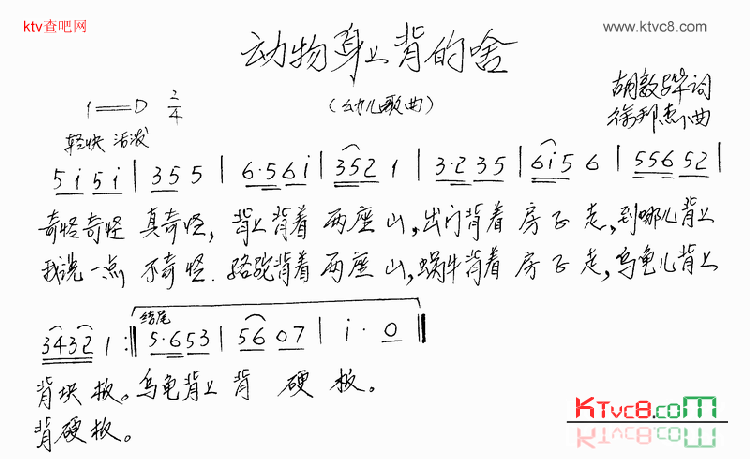 ktv查吧网
www.ktvc8.com
动物身上背的啥
(幼儿歌曲)
1=D 2/4
胡敦骅词
徐邦杰曲
轻快 活泼
5 i 5 i | 3 5 5 | 6·5 6 i | 3 5 2 1 | 3·2 3 5 | 6 i 5 6 | 5 5 6 5 2 |
奇怪奇怪 真奇怪, 背上背着 两座山,出门背着 房子走,到哪儿背上
我说一点 不奇怪.骆驼背着 两座山,蜗牛背着 房子走,乌龟儿背上
结尾
3 4 3 2 1 :‖ 5·6 5 3 | 5 6 0 7 | i · 0 ‖
背块板。乌龟背上 背 硬 板。
背硬板。
KTvc8.com